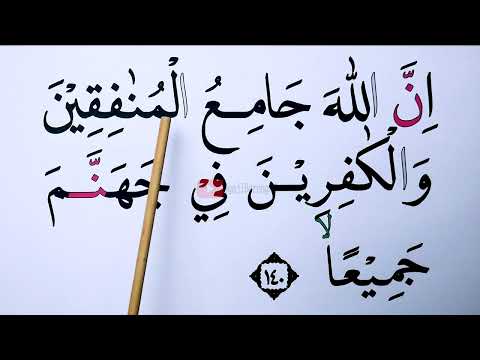 اِنَّ اللّٰهَ جَامِعُ الْمُنٰفِقِيْنَ
وَالْكٰفِرِيْنَ فِيْ جَهَنَّمَ
جَمِيْعًا ۙ ﴿١٤٠﴾